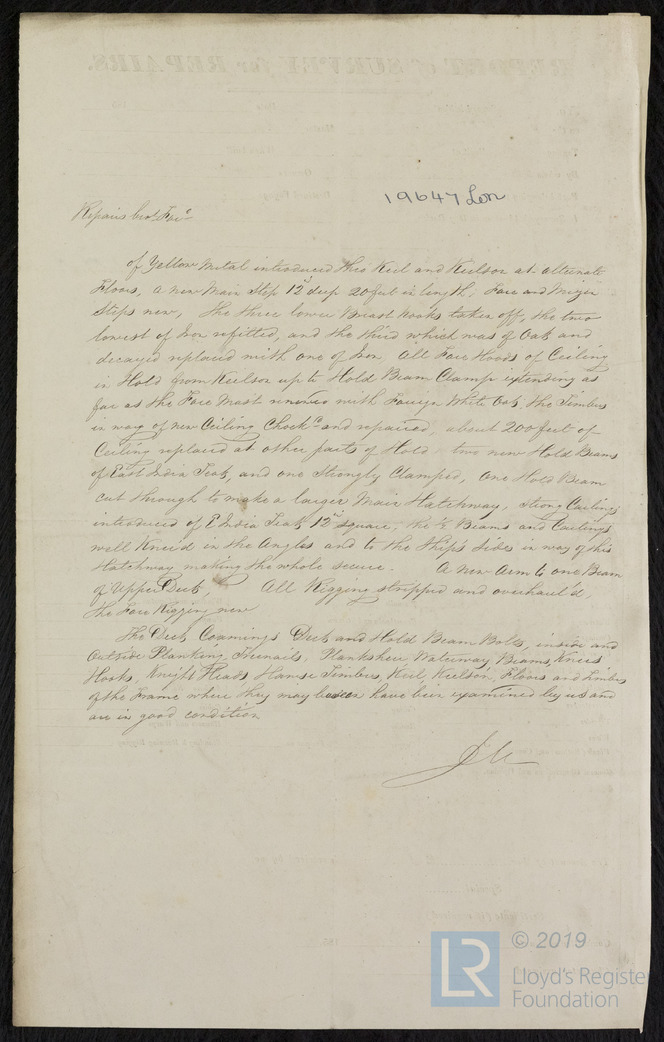 19647 Lon
Repairs bro.t For.d
of Yellow Metal introduced thro Keel and Keelson at alternate
Floors, a new Main Step 12 deep 20 feet in length, Fore and Mizen
Steps new, The three lower Breast hooks taken off, the two
lowest of Iron refitted, and the third which was of Oak and
decayed replaced with one of Iron, All Fore Hoods of Ceiling
in Hold from Keelson up to Hold Beam Clamp extending as
far as the Fore Mast renewed with Foreign White Oak, the Timbers
in way of new Ceiling Chock.d and repaired, about 200 feet of
Ceiling replaced at other parts of Hold two new Hold Beams
of East India Teak, and one Strongly Clamped, One Hold Beam
cut through to make a larger Main Hatchway, Strong Carlings
introduced of E India Teak 12 Square, the ½ Beams and Carlings
well Knee'd in the Angles and to the Ship's Sides in way of this
Hatchway making the whole secure. A new Arm to one Beam
of Upper Deck, All Rigging stripped and overhaul'd,
the Fore Rigging new
The Deck, Coamings Deck and Hold Beam Bolts, inside and
Outside Planking, Treenails, Plankshear Waterway, Beams, Knees
Hooks, Knight Heads Hawse Timbers, Keel, Keelson, Floors and Timbers
of the Frame where they may be seen have been examined by us and
are in good condition
LR
© 2019
Lloyd's Register
Foundation